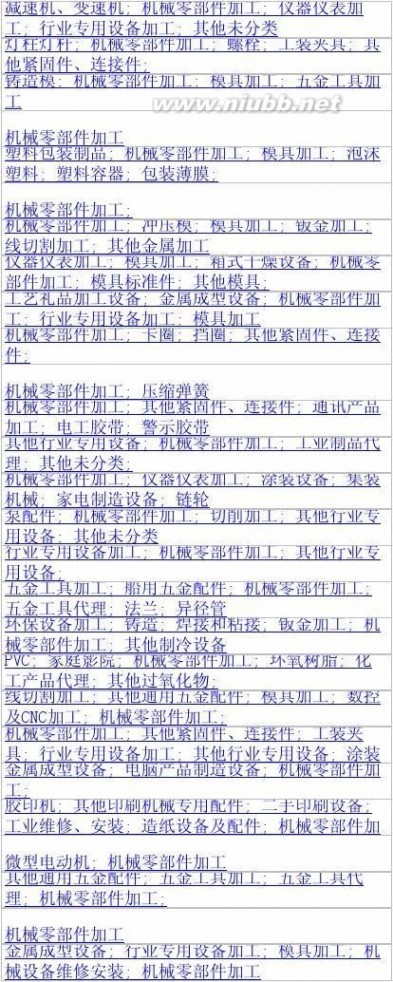 减速机、变速机; 机械零部件加工; 仪器仪表加
工; 行业专用设备加工; 其他未分类
灯柱灯杆; 机械零部件加工; 螺栓; 工装夹具; 其
他紧固件、连接件;
铸造模; 机械零部件加工; 模具加工; 五金工具加
工
www.niubb.net
机械零部件加工
塑料包装制品; 机械零部件加工; 模具加工; 泡沫
塑料; 塑料容器; 包装薄膜;
机械零部件加工;
机械零部件加工; 冲压模; 模具加工; 钣金加工;
线切割加工; 其他金属加工
仪器仪表加工; 模具加工; 箱式干燥设备; 机械零
部件加工; 模具标准件; 其他模具;
工艺礼品加工设备; 金属成型设备; 机械零部件加
工; 行业专用设备加工; 模具加工
机械零部件加工; 卡圈; 挡圈; 其他紧固件、连接
件;
机械零部件加工; 压缩弹簧
机械零部件加工; 其他紧固件、连接件; 通讯产品
加工; 电工胶带; 警示胶带
其他行业专用设备; 机械零部件加工; 工业制品代
理; 其他未分类;
机械零部件加工; 仪器仪表加工; 涂装设备; 集装
机械; 家电制造设备; 链轮
泵配件; 机械零部件加工; 切削加工; 其他行业专
用设备; 其他未分类
行业专用设备加工; 机械零部件加工; 其他行业专
用设备;
五金工具加工; 船用五金配件; 机械零部件加工;
五金工具代理; 法兰; 异径管
环保设备加工; 铸造; 焊接和粘接; 钣金加工; 机
械零部件加工; 其他制冷设备
PVC; 家庭影院; 机械零部件加工; 环氧树脂; 化
工产品代理; 其他过氧化物;
线切割加工; 其他通用五金配件; 模具加工; 数控
及CNC加工; 机械零部件加工;
机械零部件加工; 其他紧固件、连接件; 工装夹
具; 行业专用设备加工; 其他行业专用设备; 涂装
金属成型设备; 电脑产品制造设备; 机械零部件加
工;
胶印机; 其他印刷机械专用配件; 二手印刷设备;
工业维修、安装; 造纸设备及配件; 机械零部件加
微型电动机; 机械零部件加工
其他通用五金配件; 五金工具加工; 五金工具代
理; 机械零部件加工;
机械零部件加工
金属成型设备; 行业专用设备加工; 模具加工; 机
械设备维修安装; 机械零部件加工